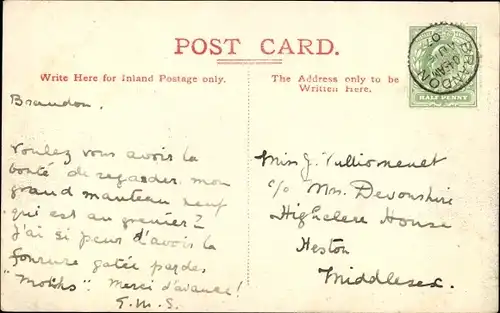 POST CARD.
Write Here for Inland Postage only.
The Address only to be
Written Here.
HALF PENNY
BRANDON
Brandon.
Voulez vous avoir la
bonté de regarder mon
grand manteau neuf
qui est au grenier?
J'ai si peur d'avoir la
fourrure gatée par des
"Moths". Merci d'avance!
E.M.S.
Miss J.
c/o Mrs. Devonshire
Highclere House
Heston
Middlesex.